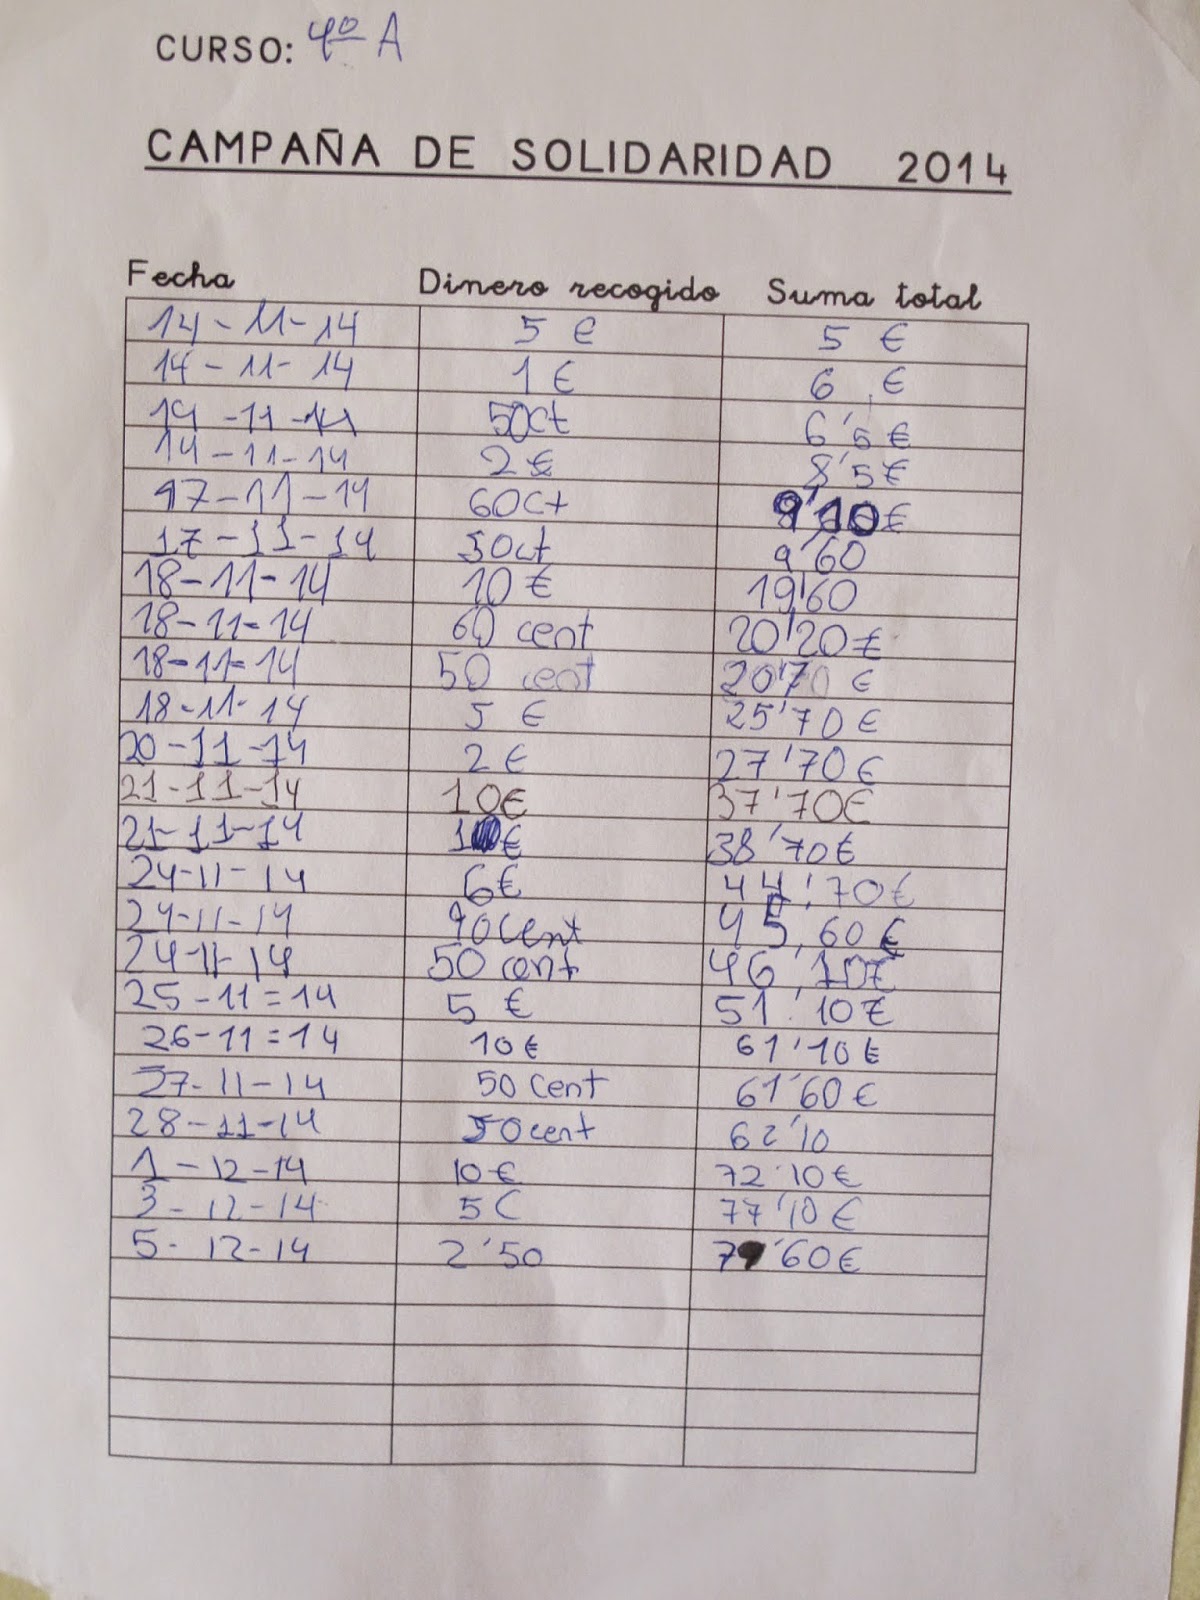 CURSO: 4º A
CAMPAÑA DE SOLIDARIDAD 2014
Fecha Dinero recogido Suma total
14-11-14 5 € 5 €
14-11-14 1 € 6 €
14-11-14 50ct 6'5 €
14-11-14 2 € 8'5 €
17-11-14 60ct 9'10 €
17-11-14 50ct 9'60
18-11-14 10 € 19'60
18-11-14 60 cent 20'20 €
18-11-14 50 cent 20'70 €
18-11-14 5 € 25'70 €
20-11-14 2 € 27'70 €
21-11-14 10€ 37'70€
21-11-14 1€ 38'70€
24-11-14 6€ 44'70€
24-11-14 90cent 45,60€
24-11-14 50 cent 46'10€
25-11=14 5 € 51'10€
26-11=14 10€ 61'10€
27-11-14 50 cent 61'60€
28-11-14 50cent 62'10
1-12-14 10€ 72'10€
3-12-14 5€ 77'10€
5-12-14 2'50 79'60€